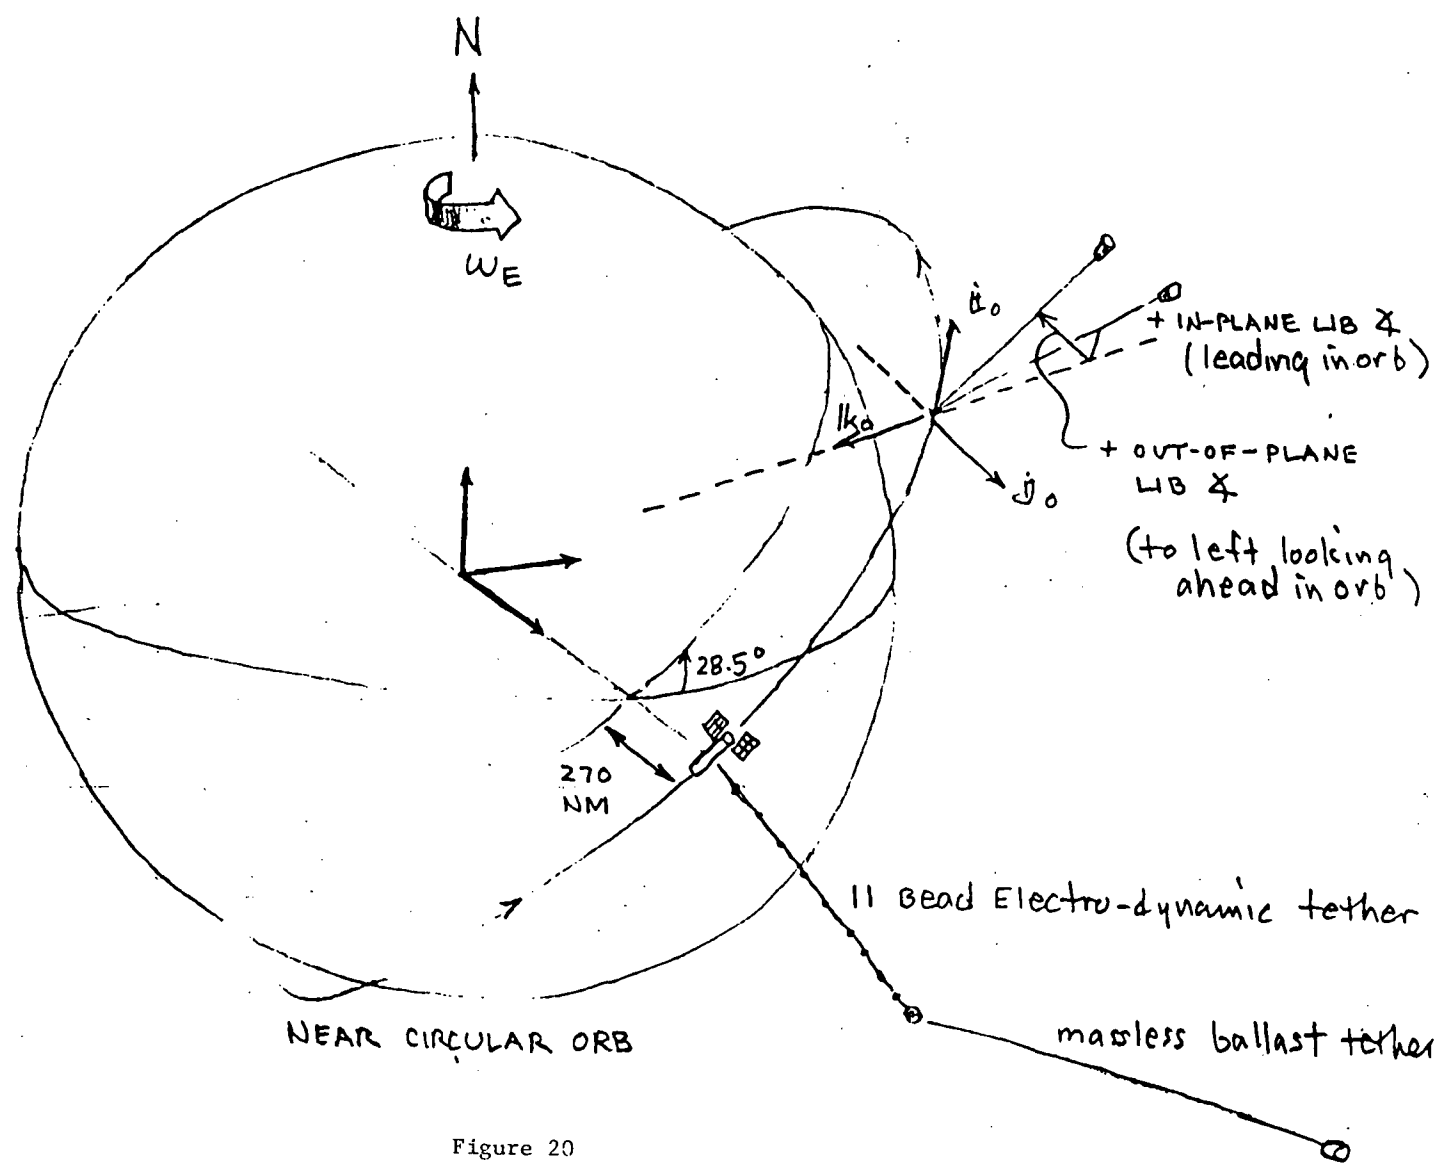 N
ωE
i₀
+ IN-PLANE LIB ∡
(leading in orb)
lk₀
+ OUT-OF-PLANE
LIB ∡
j₀
(to left looking
ahead in orb)
28.5°
270
NM
11 Bead Electro-dynamic tether
NEAR CIRCULAR ORB
massless ballast tether
Figure 20